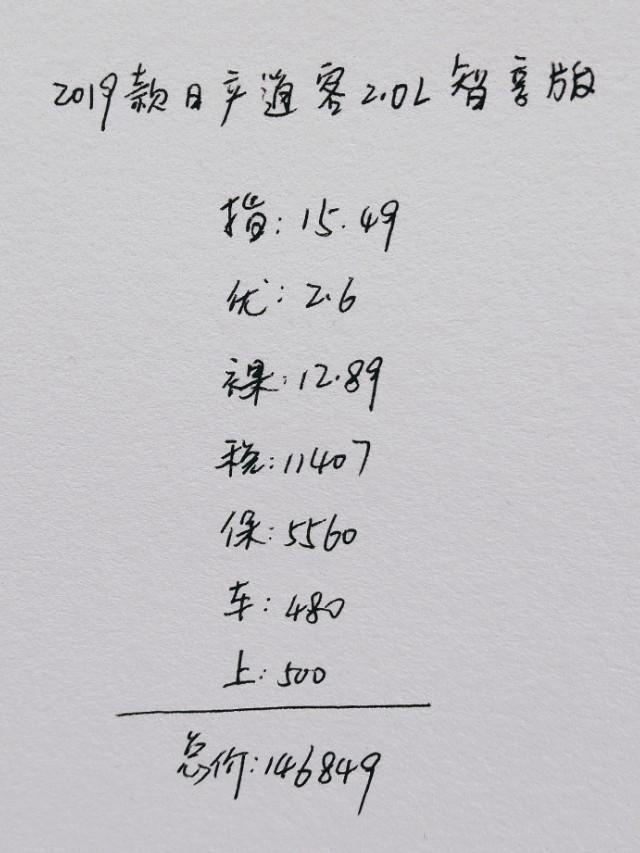 2019款日产逍客2.0L智享版
指:15.49
优:2.6
裸:12.89
税:11407
保:5560
车:480
上:500
总价:146849